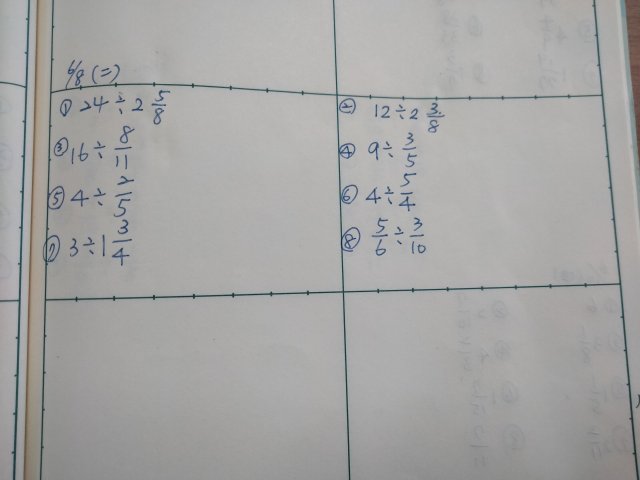 6/8 (二)
① 24 ÷ 2 5/8
② 12 ÷ 2 3/8
③ 16 ÷ 8/11
④ 9 ÷ 3/5
⑤ 4 ÷ 2/5
⑥ 4 ÷ 5/4
⑦ 3 ÷ 1 3/4
⑧ 5/6 ÷ 3/10